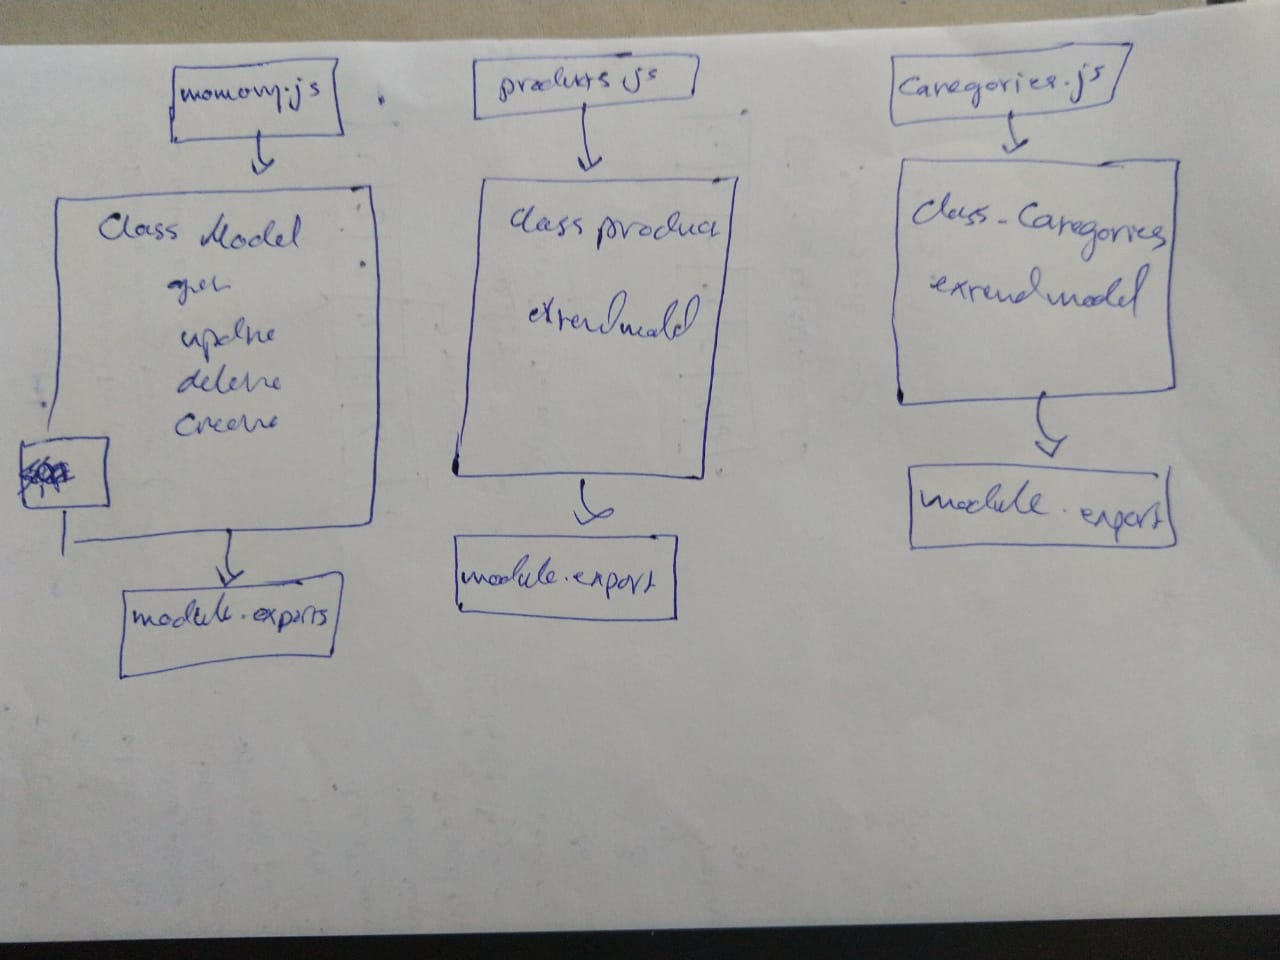 momory.js
Class Model
get
update
delete
create
module.exports
products.js
class product
extend model
module.export
Categories.js
class-Categories
extend model
module.export